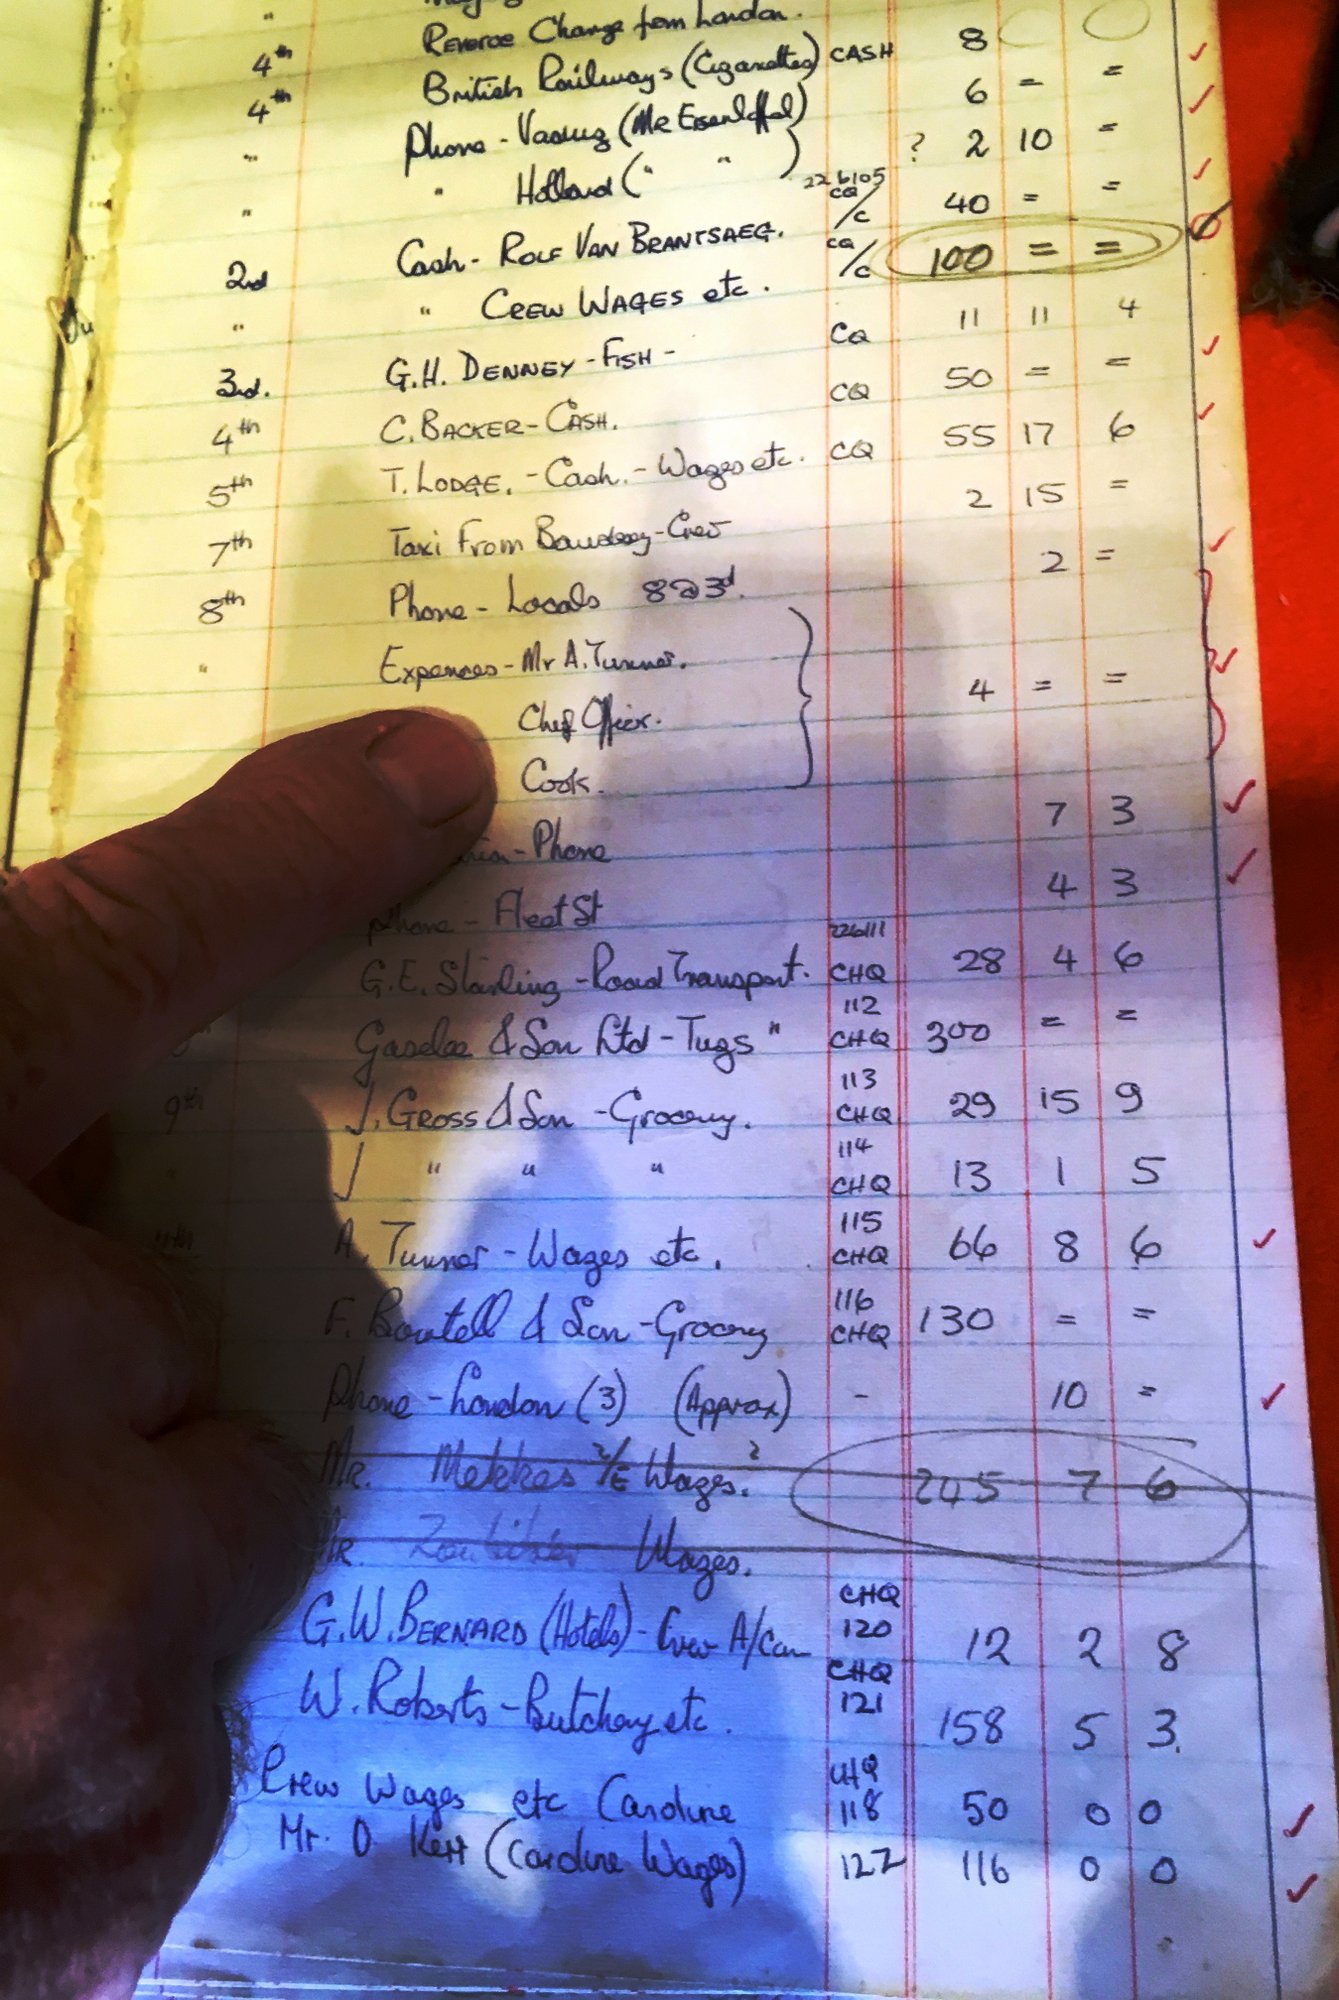 4th Reverse Charge from London.
4th British Railways (Cigarettes) CASH 8
" Phone - Vaduz (Mr 6 = =
" " Holland (" ") ? 2 10 =
2nd Cash - ROLF VAN BRANTSAEG. 226105 CQ /C 40 = =
" " CREW WAGES etc. CQ /C 100 = =
3rd. G.H. DENNEY - FISH - CQ 11 11 4
4th C. BACKER - CASH. CQ 50 = =
5th T. LODGE. - Cash. - Wages etc. CQ 55 17 6
7th Taxi From Bawdsey - Crew 2 15 =
8th Phone - Locals 8@3d. 2 =
" Expences - Mr A. Turner.
Chief Officer. 4 = =
Cook.
- Phone 7 3
Phone - Fleet St 4 3
G.E. Starling - Road Transport. 226111 CHQ 28 4 6
Gaselee & Son Ltd - Tugs " 112 CHQ 300 = =
9th J. GROSS & Son - Grocery. 113 CHQ 29 15 9
" " " 114 CHQ 13 1 5
11th A. Turner - Wages etc. 115 CHQ 66 8 6
F. Boutell & Son - Grocery 116 CHQ 130 = =
Phone - London (3) (Approx) - 10 =
Mr. Mekkes 2/E Wages. ? 245 7 6
Mr. Wages.
G.W. BERNARD (Hotels) - Crew A/Com CHQ 120 12 2 8
W. Roberts - Butchery etc. CHQ 121 158 5 3.
Crew Wages etc Caroline CHQ 118 50 0 0
Mr. D. Kerr (Caroline Wages) 122 116 0 0